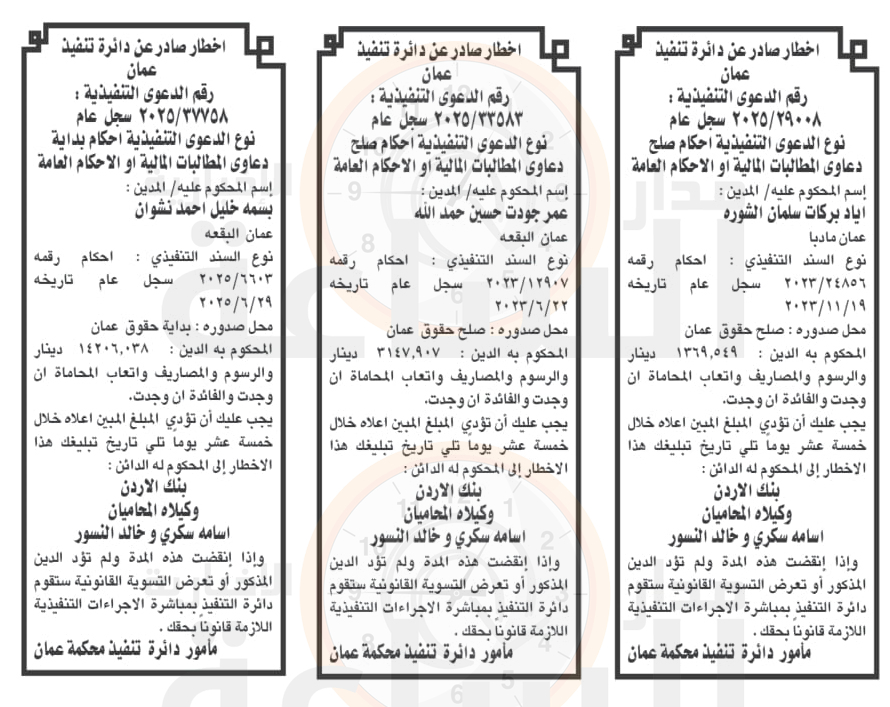 اخطار صادر عن دائرة تنفيذ
عمان
رقم الدعوى التنفيذية :
٢٠٢٥/٢٩٠٠٨ سجل عام
نوع الدعوى التنفيذية احكام صلح
دعاوى المطالبات المالية او الاحكام العامة
إسم المحكوم عليه/ المدين :
اياد بركات سلمان الشوره
عمان مادبا
نوع السند التنفيذي : احكام رقمه
٢٠٢٣/٢٤٨٥٦ سجل عام تاريخه
٢٠٢٣/١١/١٩
محل صدوره : صلح حقوق عمان
المحكوم به الدين : ١٣٦٩,٥٤٩ دينار
والرسوم والمصاريف واتعاب المحاماة ان
وجدت والفائدة ان وجدت.
يجب عليك أن تؤدي المبلغ المبين اعلاه خلال
خمسة عشر يوماً تلي تاريخ تبليغك هذا
الاخطار إلى المحكوم له الدائن :
بنك الاردن
وكيلاه المحاميان
اسامه سكري و خالد النسور
وإذا إنقضت هذه المدة ولم تؤد الدين
المذكور أو تعرض التسوية القانونية ستقوم
دائرة التنفيذ بمباشرة الاجراءات التنفيذية
اللازمة قانوناً بحقك .
مأمور دائرة تنفيذ محكمة عمان
اخطار صادر عن دائرة تنفيذ
عمان
رقم الدعوى التنفيذية :
٢٠٢٥/٣٣٥٨٣ سجل عام
نوع الدعوى التنفيذية احكام صلح
دعاوى المطالبات المالية او الاحكام العامة
إسم المحكوم عليه/ المدين :
عمر جودت حسين حمد الله
عمان البقعه
نوع السند التنفيذي : احكام رقمه
٢٠٢٣/١٢٩٠٧ سجل عام تاريخه
٢٠٢٣/٦/٢٢
محل صدوره : صلح حقوق عمان
المحكوم به الدين : ٣١٤٧,٩٠٧ دينار
والرسوم والمصاريف واتعاب المحاماة ان
وجدت والفائدة ان وجدت.
يجب عليك أن تؤدي المبلغ المبين اعلاه خلال
خمسة عشر يوماً تلي تاريخ تبليغك هذا
الاخطار إلى المحكوم له الدائن :
بنك الاردن
وكيلاه المحاميان
اسامه سكري و خالد النسور
وإذا إنقضت هذه المدة ولم تؤد الدين
المذكور أو تعرض التسوية القانونية ستقوم
دائرة التنفيذ بمباشرة الاجراءات التنفيذية
اللازمة قانوناً بحقك .
مأمور دائرة تنفيذ محكمة عمان
اخطار صادر عن دائرة تنفيذ
عمان
رقم الدعوى التنفيذية :
٢٠٢٥/٣٧٧٥٨ سجل عام
نوع الدعوى التنفيذية احكام بداية
دعاوى المطالبات المالية او الاحكام العامة
إسم المحكوم عليه/ المدين :
بسمه خليل احمد نشوان
عمان البقعه
نوع السند التنفيذي : احكام رقمه
٢٠٢٥/٦٦٠٣ سجل عام تاريخه
٢٠٢٥/٦/٢٩
محل صدوره : بداية حقوق عمان
المحكوم به الدين : ١٤٢٠٦,٠٣٨ دينار
والرسوم والمصاريف واتعاب المحاماة ان
وجدت والفائدة ان وجدت.
يجب عليك أن تؤدي المبلغ المبين اعلاه خلال
خمسة عشر يوماً تلي تاريخ تبليغك هذا
الاخطار إلى المحكوم له الدائن :
بنك الاردن
وكيلاه المحاميان
اسامه سكري و خالد النسور
وإذا إنقضت هذه المدة ولم تؤد الدين
المذكور أو تعرض التسوية القانونية ستقوم
دائرة التنفيذ بمباشرة الاجراءات التنفيذية
اللازمة قانوناً بحقك .
مأمور دائرة تنفيذ محكمة عمان